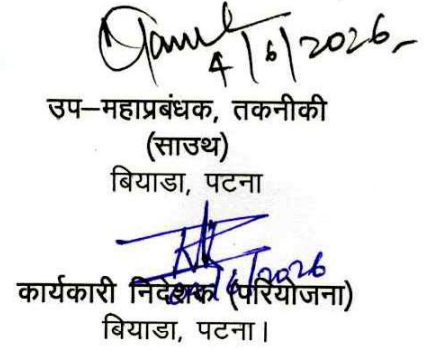 4/6/2026
उप–महाप्रबंधक, तकनीकी
(साउथ)
बियाडा, पटना
कार्यकारी निदेशक (परियोजना)
बियाडा, पटना।